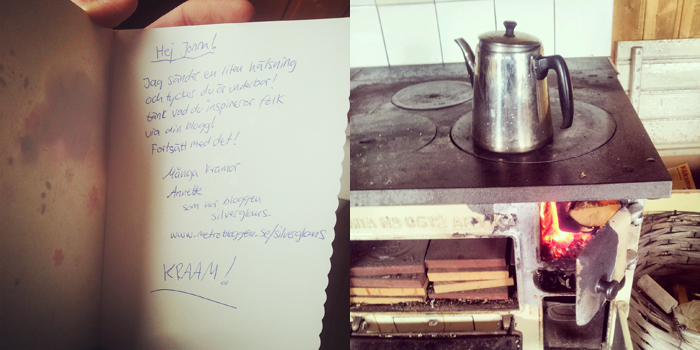 Hej Jonna!
Jag sänder en liten hälsning
och tycker du är underbar!
tänk vad du inspirerar folk
via din blogg!
Fortsätt med det!
Många kramar
Annette
som har bloggen
silverglans.
www.metrobloggen.se/silverglans
KRAAM!